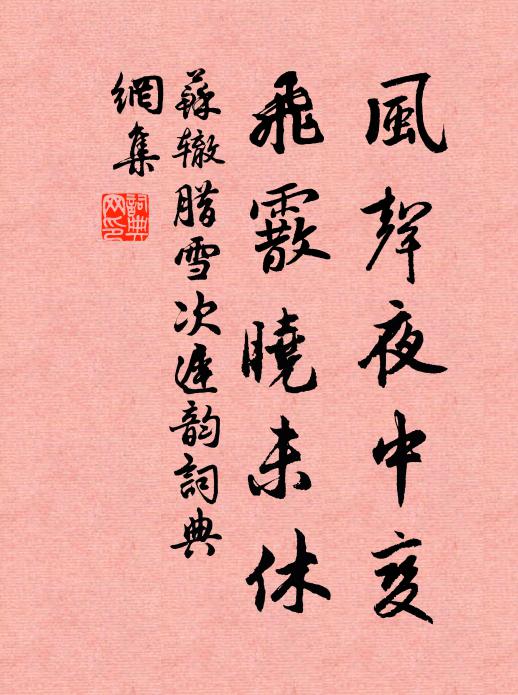 風聲夜中变
飛霰曉未休
蘇辙腊雪次遲韵詞典
網集
詞典
网印